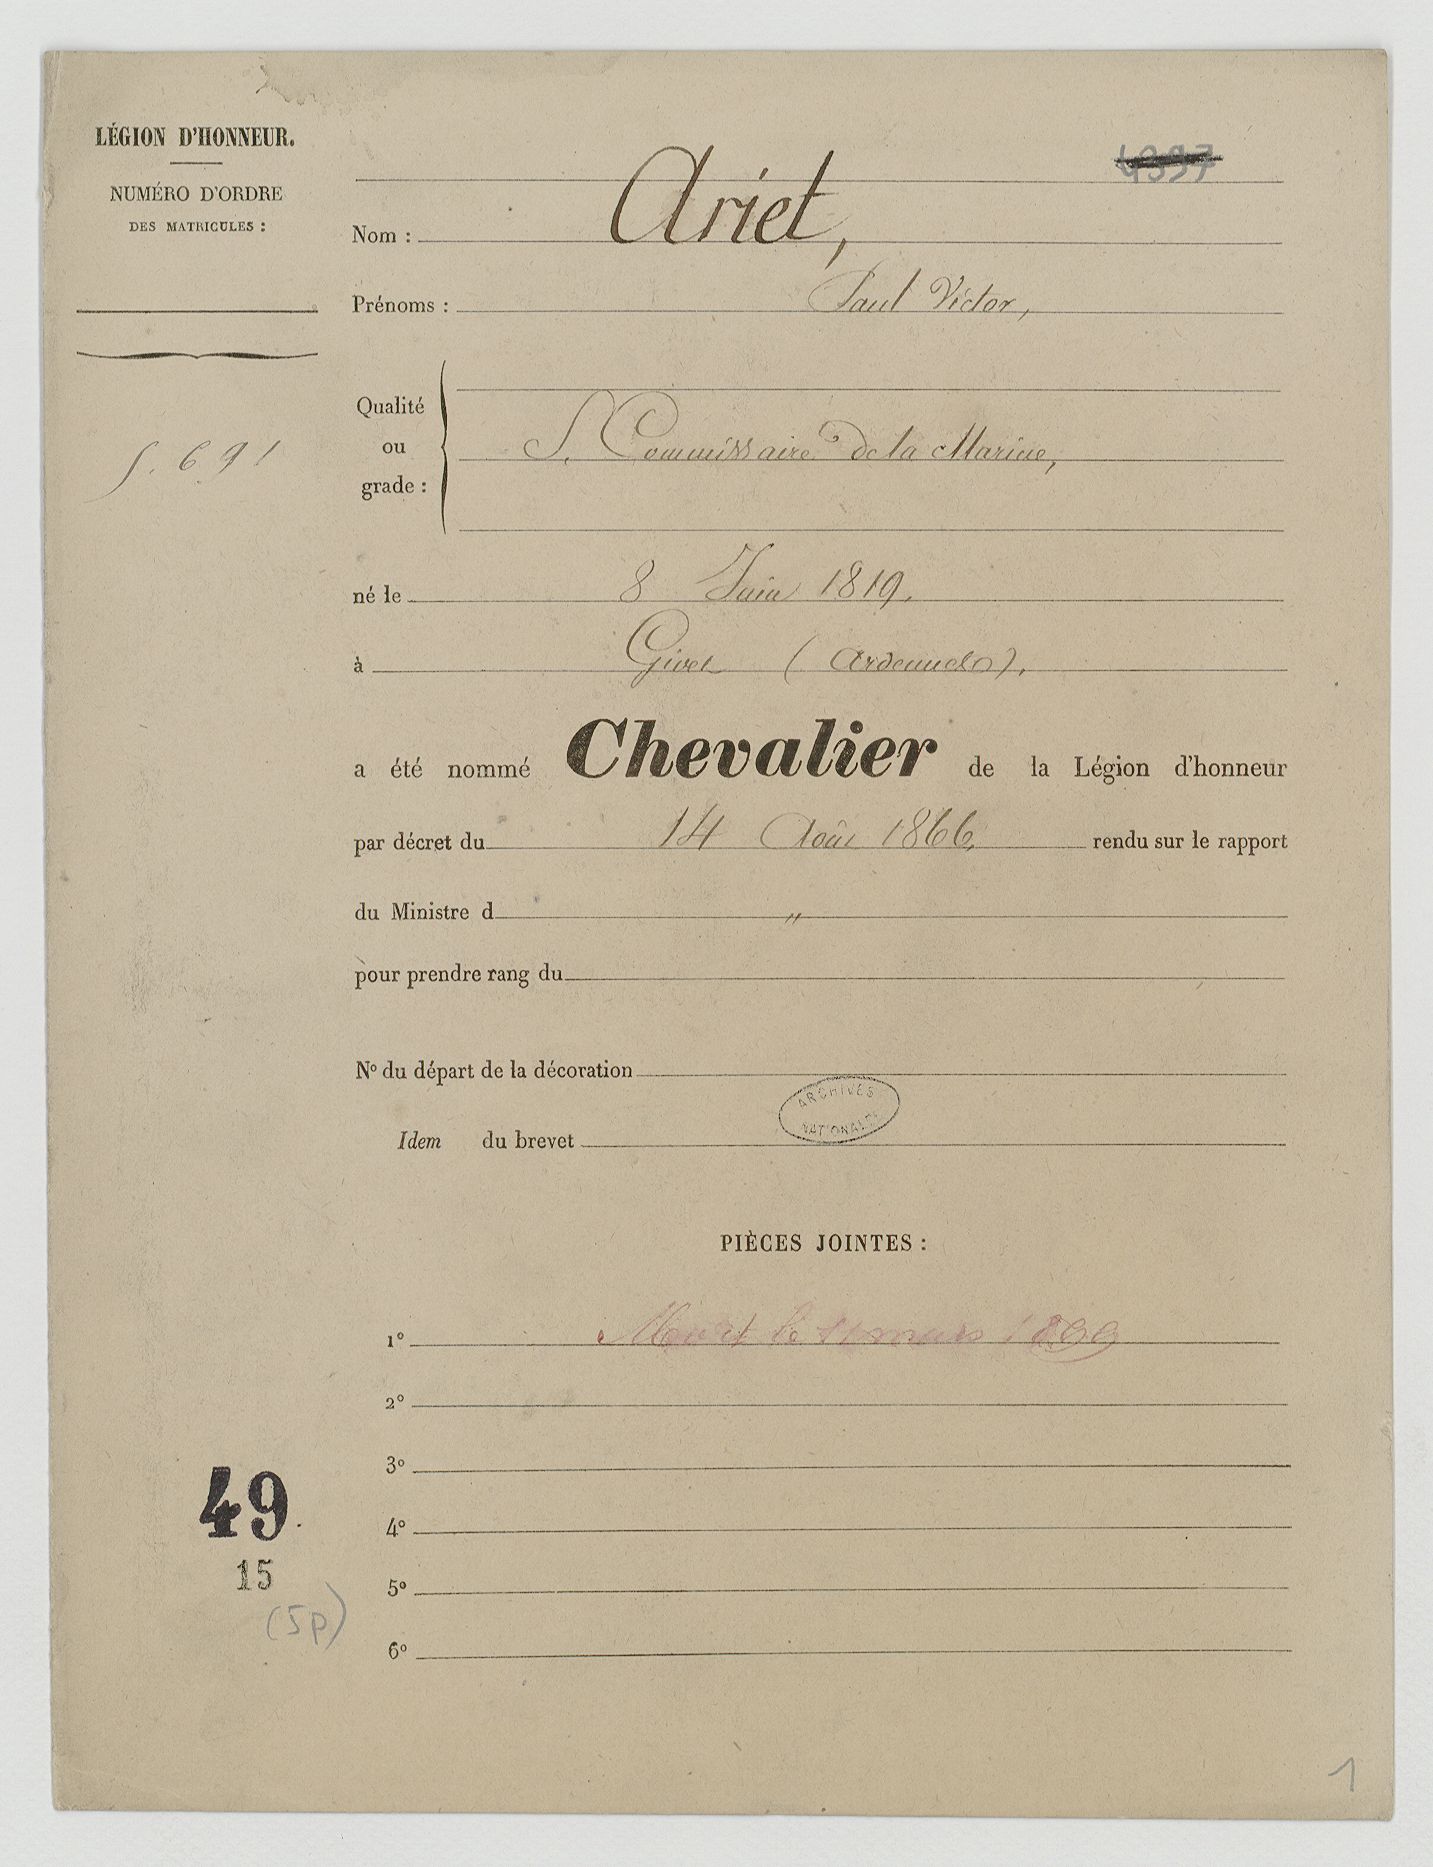 LÉGION D'HONNEUR.
NUMÉRO D'ORDRE
DES MATRICULES :
4397
Nom : Ariet,
Prénoms : Paul Victor,
Qualité
ou
grade :
S. Commissaire de la Marine,
S. 691
né le 8 Juin 1819.
à Givet (Ardennes).
a été nommé Chevalier de la Légion d'honneur
par décret du 14 Août 1866, rendu sur le rapport
du Ministre d "
pour prendre rang du
No du départ de la décoration
ARCHIVES
NATIONALES
Idem du brevet
PIÈCES JOINTES :
1° Mort le mars 1899
2°
3°
49.
4°
15
5°
(5p)
6°
1